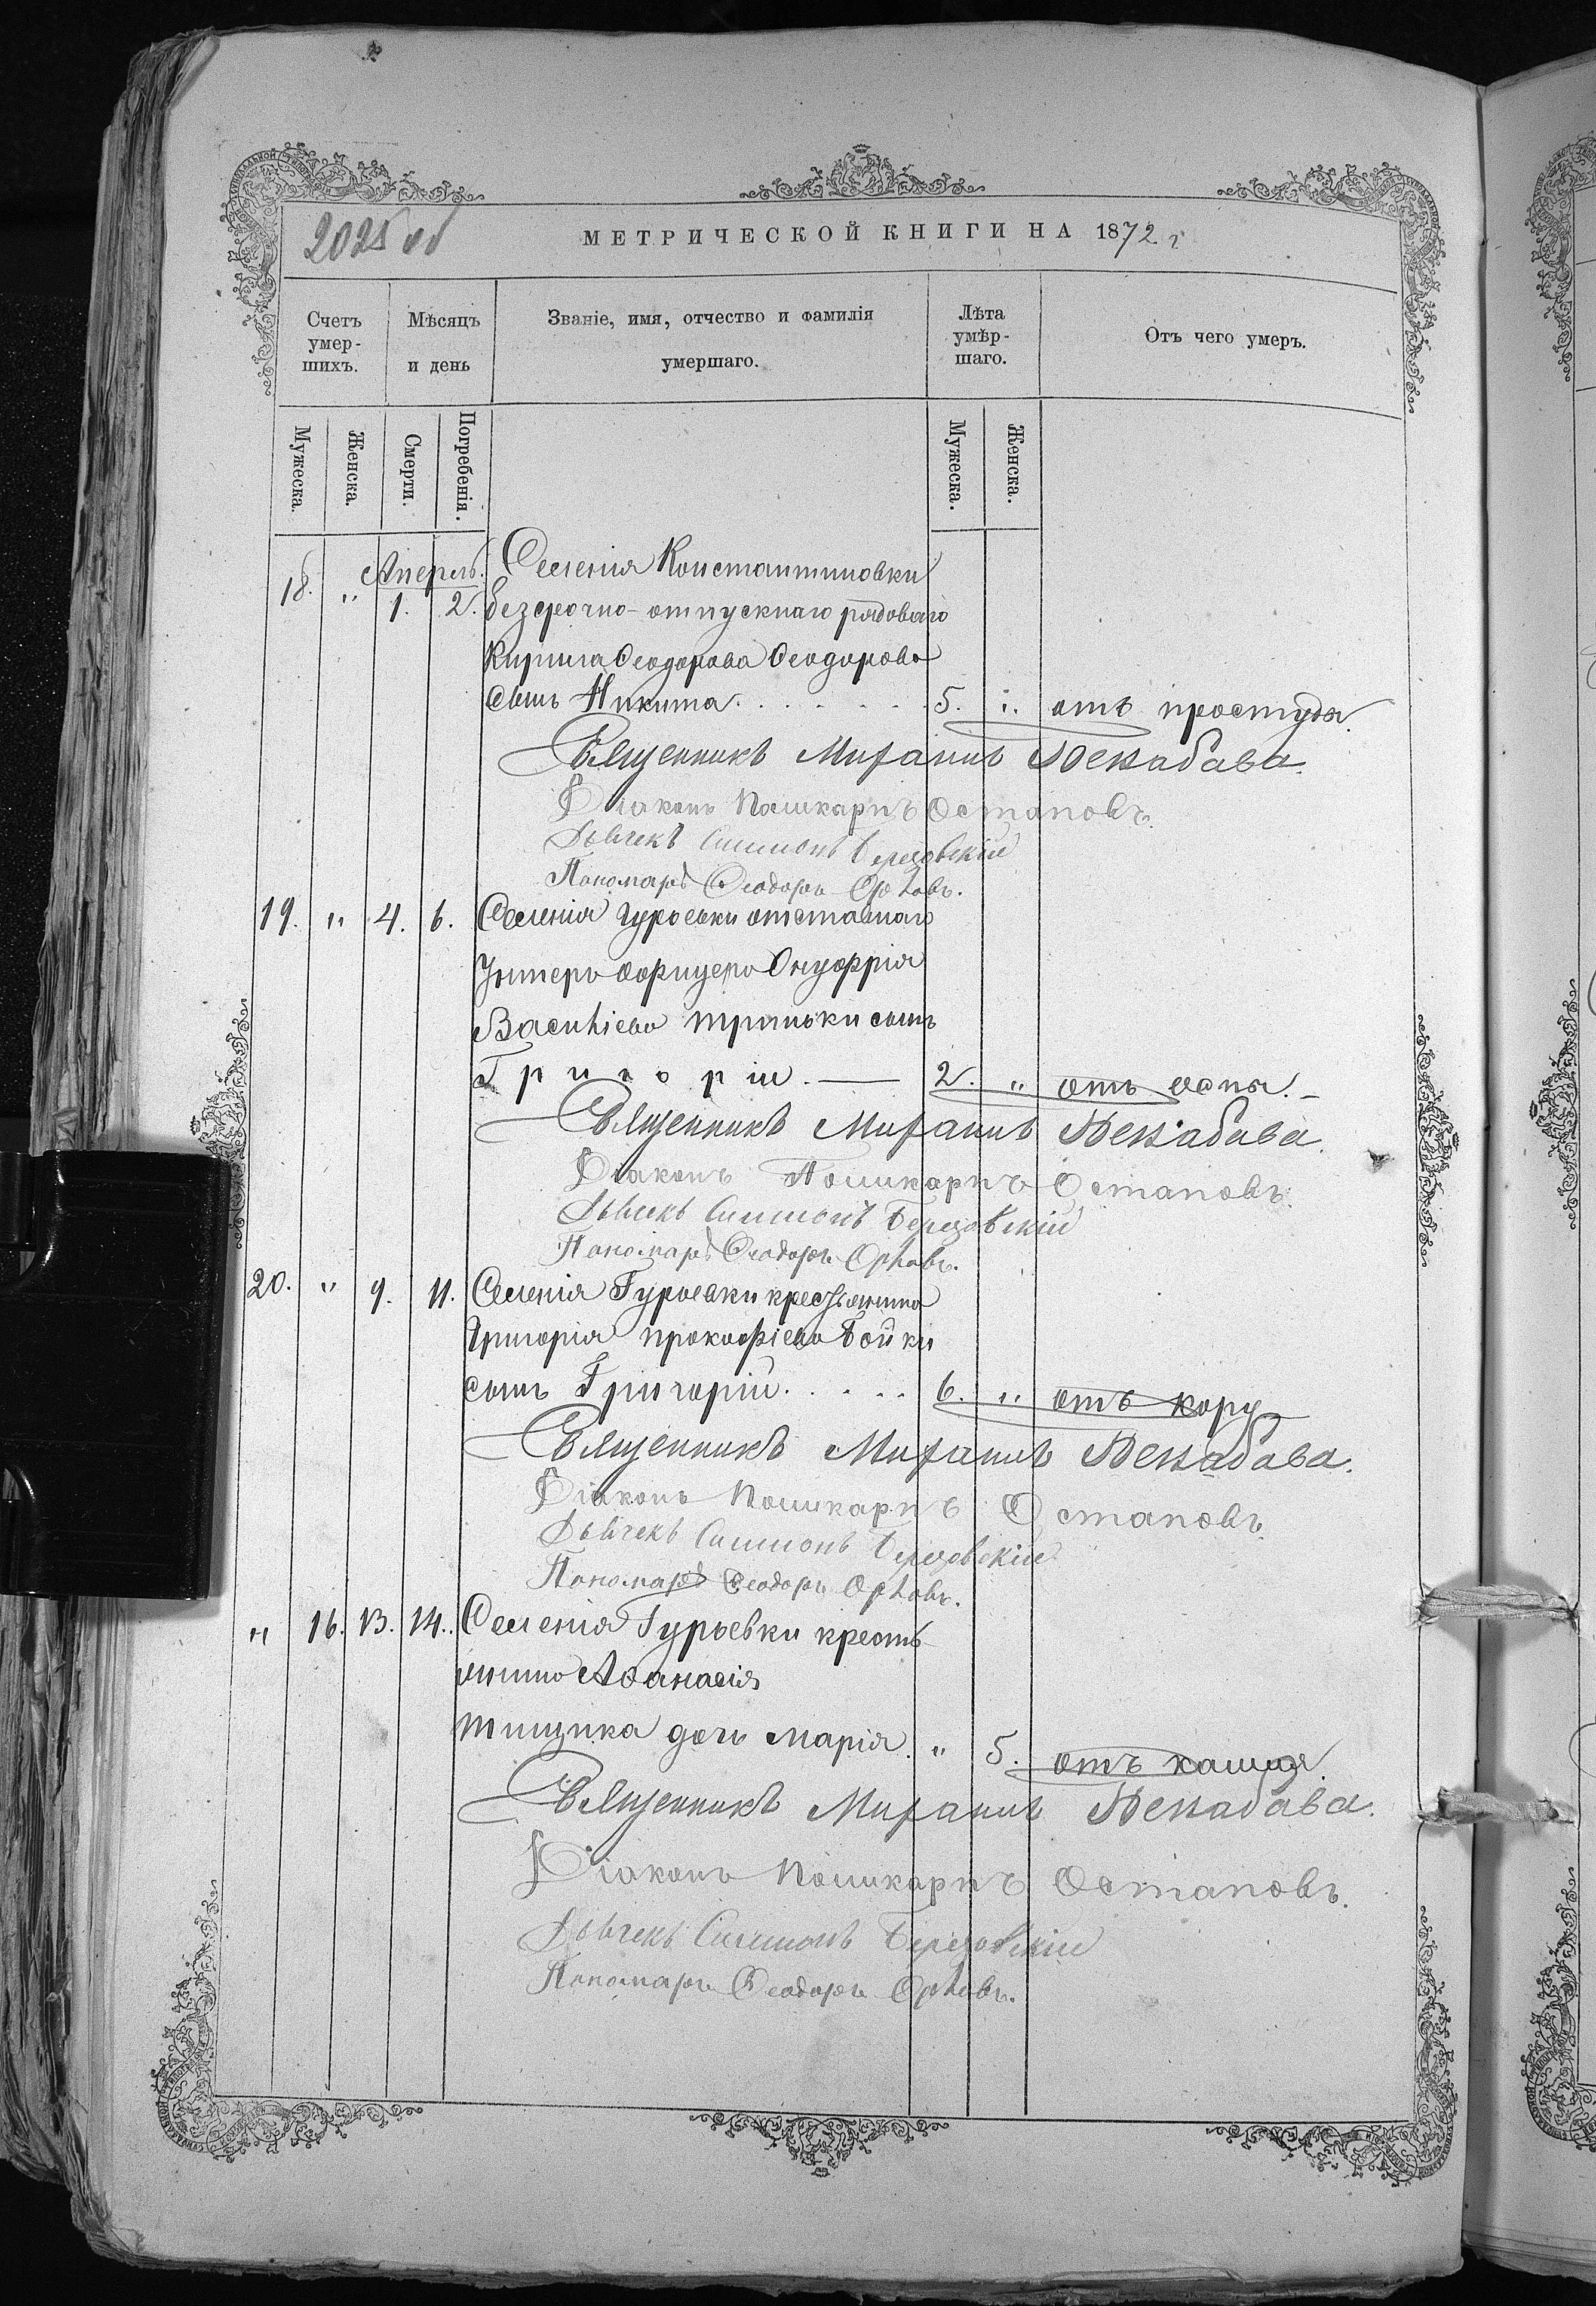 2025 об
МЕТРИЧЕСКОЙ КНИГИ НА 1872 г
Счетъ умер-шихъ.
Мѣсяцъ и день
Званіе, имя, отчество и фамилія умершаго.
Лѣта умѣр-шаго.
Отъ чего умеръ.
Мужеска.
Женска.
Смерти.
Погребенія.
Мужеска.
Женска.
Апрель.
18. " 1. 2. Селенія Константиновки
безсрочно-отпускнаго рядоваго
Кирила Феодорова Феодорова
сынъ Никита. . . . . . . 5. " отъ простуды.
Священникъ Митрофанъ
Діаконъ Поликарпъ Остаповъ.
Дьячекъ Симеонъ Березовскій
Пономарь Феодоръ Орловъ.
19. " 4. 6. Селенія Гурьевки отставнаго
Унтеръ офицера Онуфрія
Василіева сынъ
Григорій. — 2. " отъ оспы. —
Священникъ
Діаконъ Поликарпъ Остаповъ.
Дьячекъ Симеонъ Березовскій
Пономарь Феодоръ Орловъ.
20. " 9. 11. Селенія Гурьевки крестьянина
Григорія Прокофіева Бойки
сынъ Григорій. . . . . 6. " отъ кору
Священникъ
Діаконъ Поликарпъ Остаповъ.
Дьячекъ Симеонъ Березовскій
Пономарь Феодоръ Орловъ.
" 16. 13. 14. Селенія Гурьевки кресть-
янина Афанасія
Тищика дочь Марія. " 5. отъ кашля.
Священникъ
Діаконъ Поликарпъ Остаповъ.
Дьячекъ Симеонъ Березовскій
Пономарь Феодоръ Орловъ.